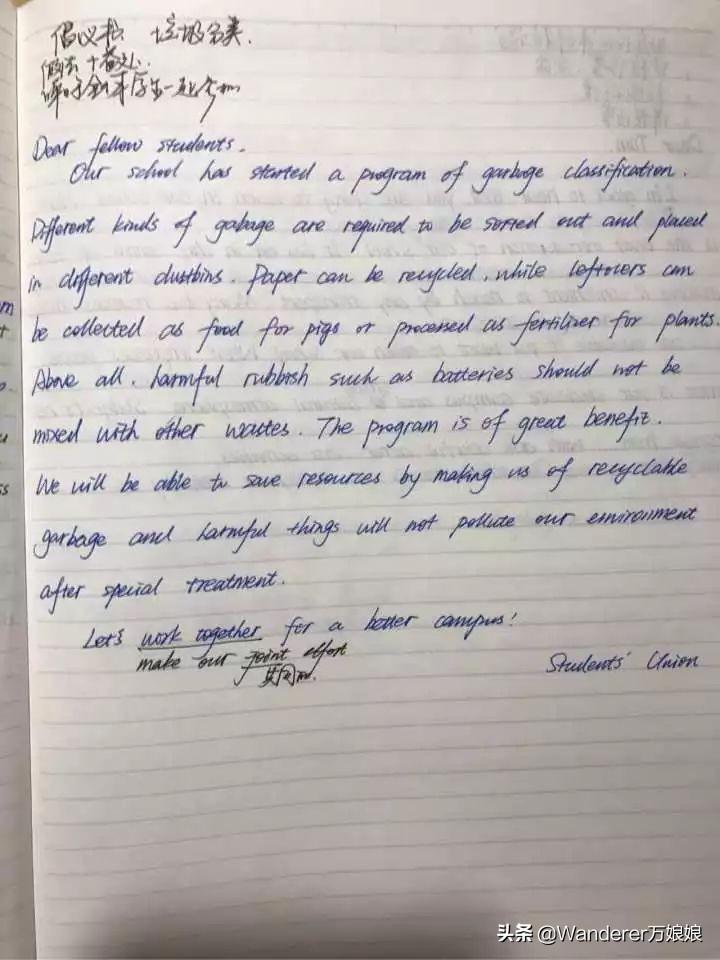 倡议书 垃圾分类.
做法+益处.
呼吁全体学生一起参加
Dear fellow students.
Our school has started a program of garbage classification.
Different kinds of garbage are required to be sorted out and placed
in different dustbins. Paper can be recycled, while leftovers can
be collected as food for pigs or processed as fertilizer for plants.
Above all, harmful rubbish such as batteries should not be
mixed with other wastes. The program is of great benefit.
We will be able to save resources by making us of recyclable
garbage and harmful things will not pollute our environment
after special treatment.
Let's work together for a better campus!
make our joint effort
共同
Students' Union
头条 @Wanderer万娘娘